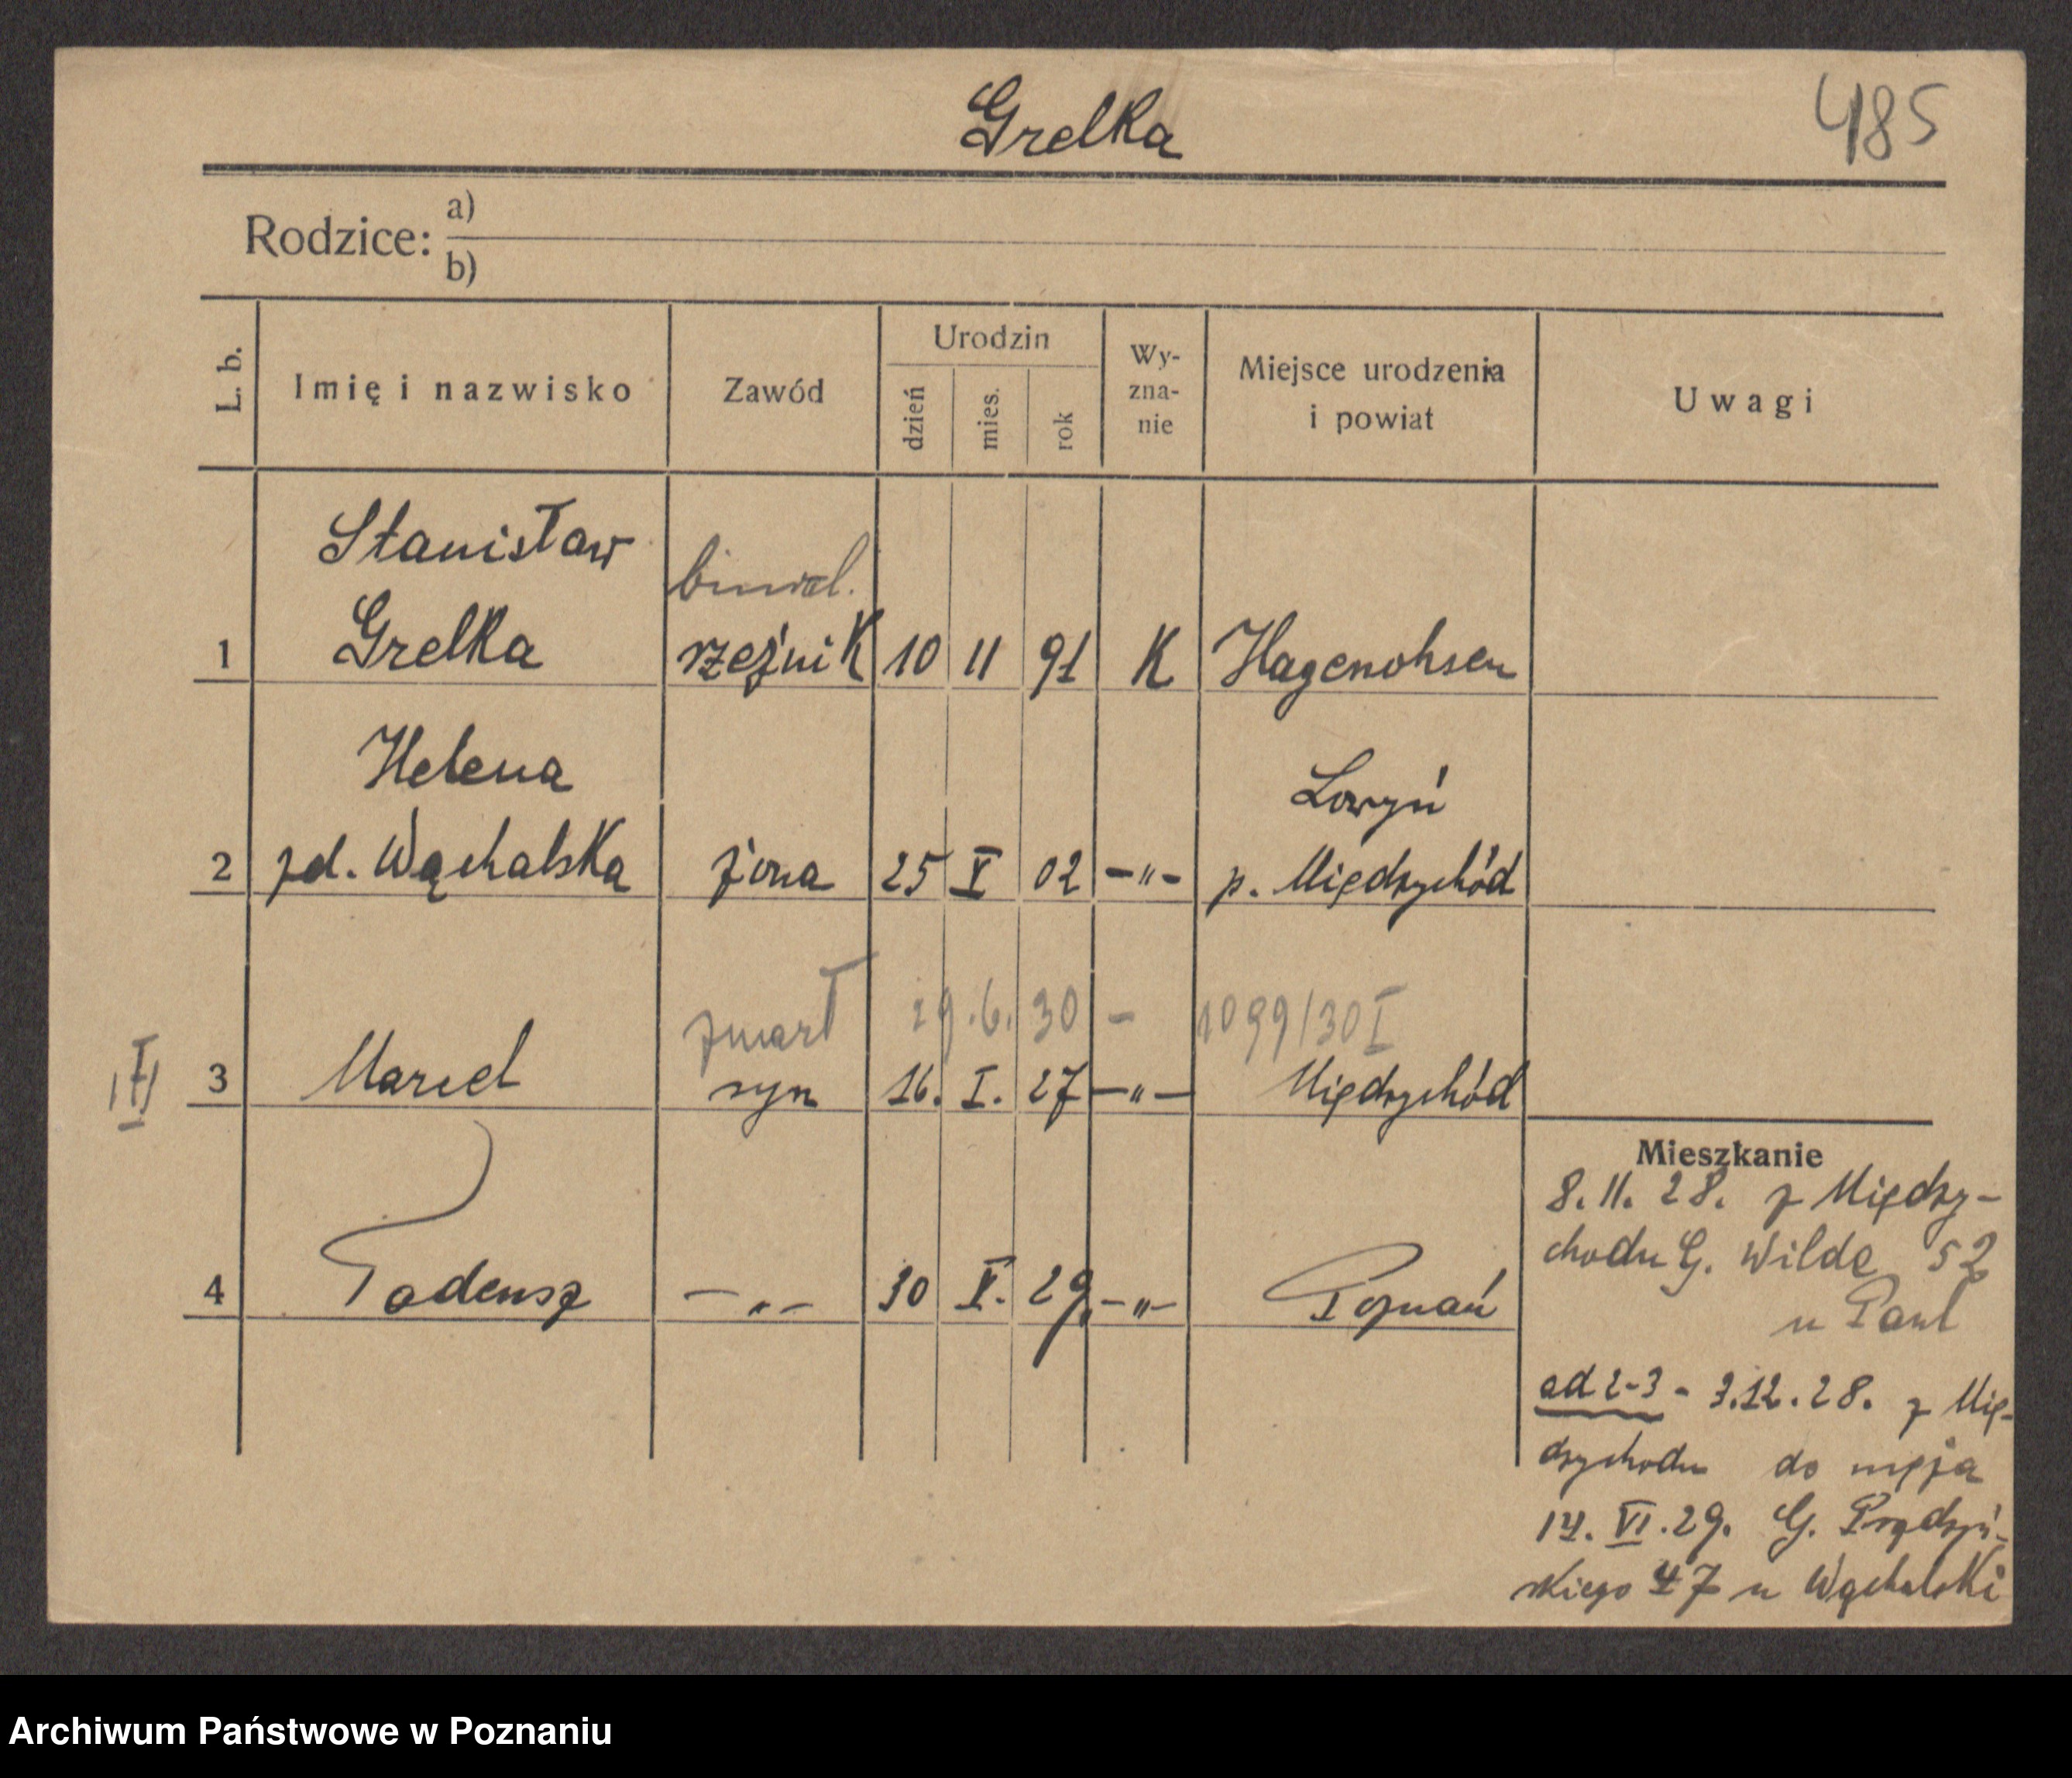 Grelka
485
Rodzice: a)
b)
L. b.
Imię i nazwisko
Zawód
Urodzin
dzień
mies.
rok
Wy-
zna-
nie
Miejsce urodzenia
i powiat
Uwagi
Stanisław
1 Grelka rzeźnik 10 11 91 K Hagenohsen
Helena
Lowyń
2 zd. Wąchalska żona 25 V 02 -„- p. Międzychód
zmarł 29.6.30 - 1099/30 I
3 Marcel syn 16. I. 27 -„- Międzychód
4 Tadeusz -„- 30 V. 29 -„- Poznań
Mieszkanie
8.11.28. z Między-
chodu G. Wilda 52
u Paul
ad 2-3 - 3.12.28. z Mię-
dzychodu do męża
14. VI. 29. G. Prądzyń-
skiego 47 u Wąchalski
Archiwum Państwowe w Poznaniu